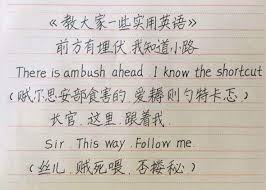 《教大家一些实用英语》
前方有埋伏 我知道小路
There is ambush ahead. I know the shortcut
(贼尔思安部食害的 爱耨则勺特卡忑)
长官,这里,跟着我.
Sir. This way. Follow me.
(丝儿,贼死喂,否楼秘)